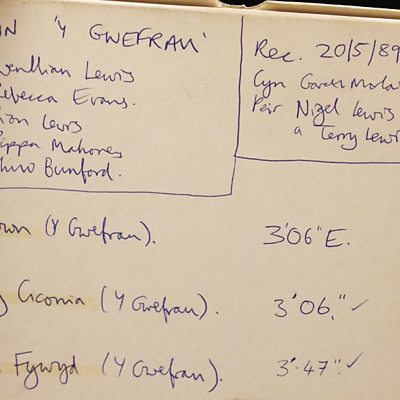 'Y GWEFRAU'
Gwenllian Lewis
Rebecca Evans.
ion Lewis
Pippa Mahoney
Bumford.
Rec. 20/5/89
Cyn Gareth
Peir Nigel Lewis
a Terry Lewi
(Y Gwefrau). 3'06" E.
(Y Gwefrau). 3'06." ✓
Fywyd (Y Gwefrau). 3'.47". ✓